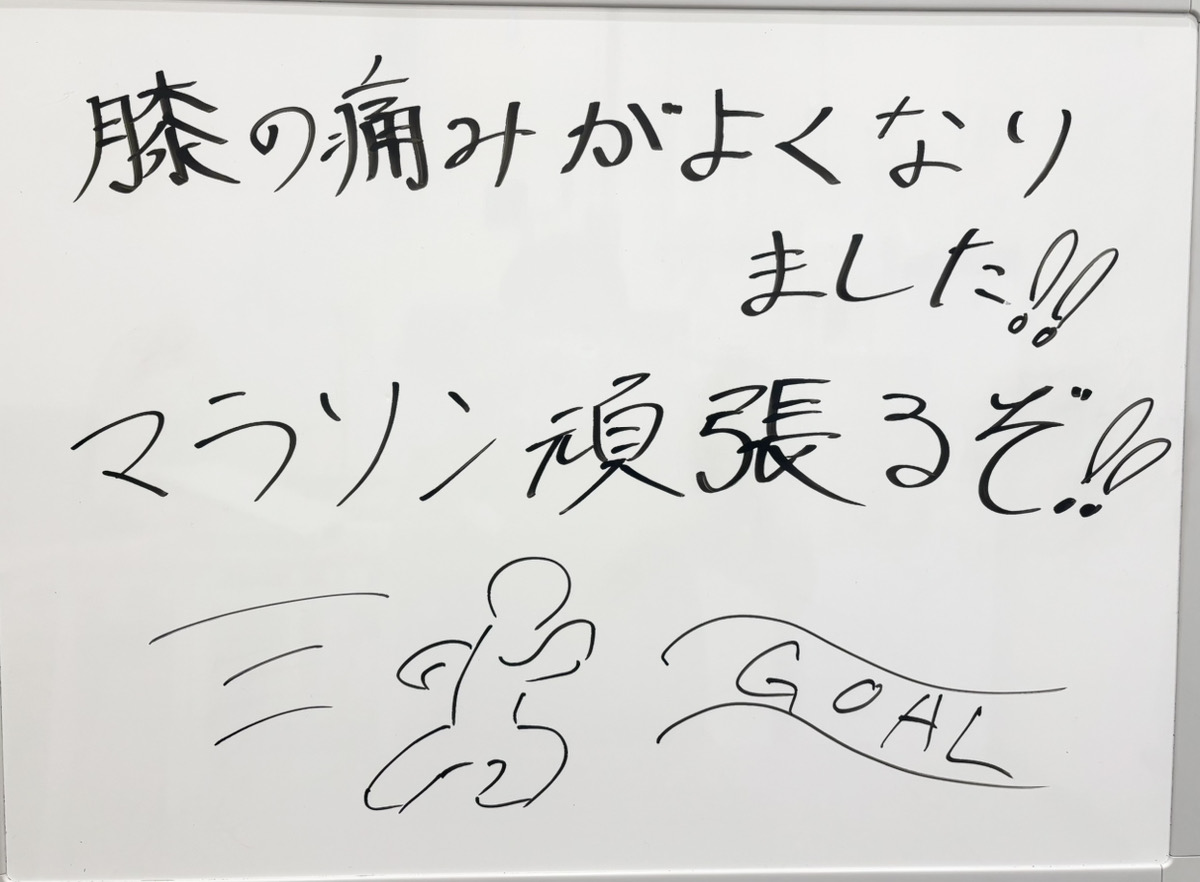 膝の痛みがよくなり
ました!!
マラソン頑張るぞ!!
GOAL